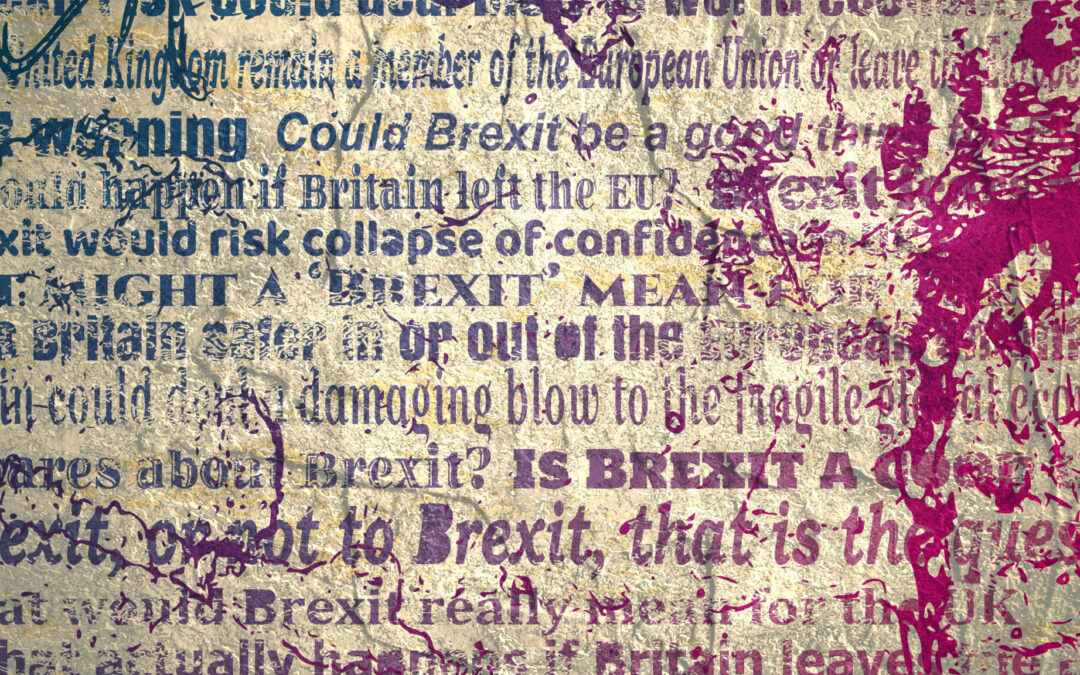 risk could deal world
United Kingdom remain a member of the European Union or leave the
warning Could Brexit be a good thing
happen if Britain left the EU? Brexit
would risk collapse of confidence
MIGHT A 'BREXIT' MEAN FOR
Britain safer in or out of the European
could deal a damaging blow to the fragile global
about Brexit? IS BREXIT A GOOD
or not to Brexit, that is the
would Brexit really mean for the UK
actually happens if Britain leaves